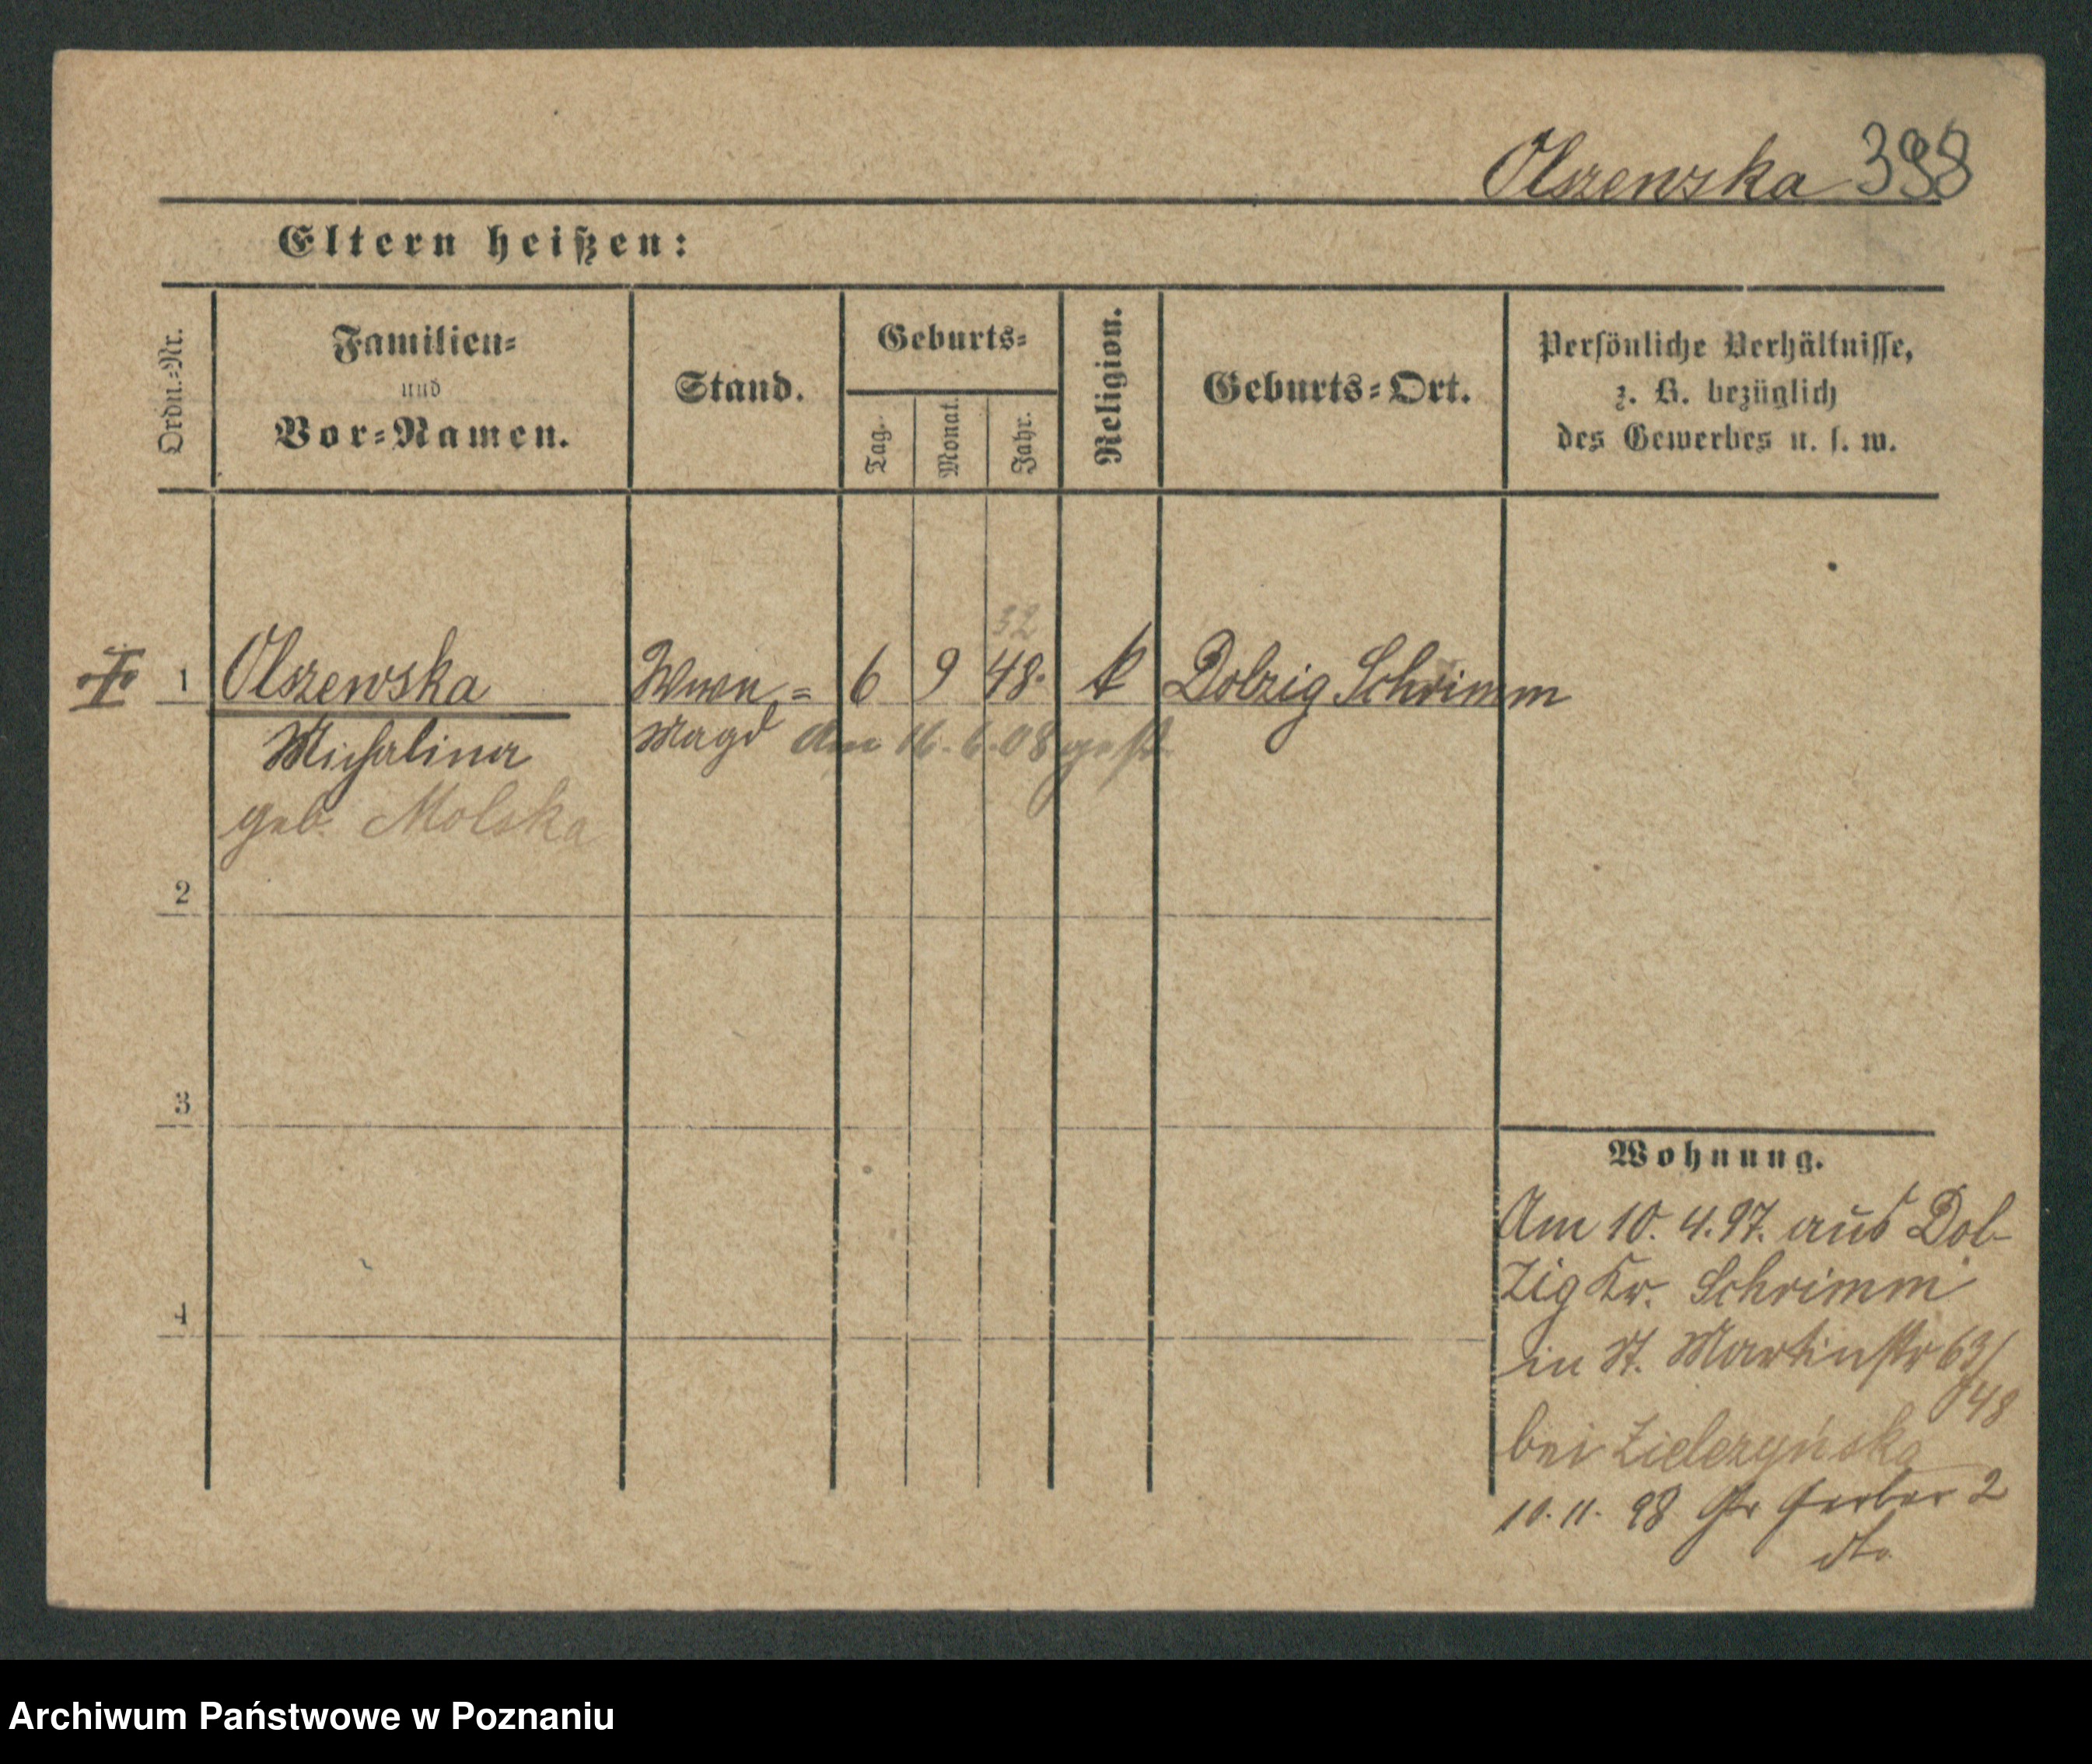 Olszewska 398
Eltern heißen:
Ordn.-Nr.
Familien-
und
Vor-Namen.
Stand.
Geburts-
Tag.
Monat.
Jahr.
Religion.
Geburts-Ort.
Persönliche Verhältnisse,
z. B. bezüglich
des Gewerbes u. s. w.
32
1 Olszewska Wwe = 6 9 48. k Dolzig Schrimm
Michalina Magd Am 16. 6. 08 gest
geb. Molska
2
3
4
Wohnung.
Am 10. 4. 97. aus Dol-
zig Kr. Schrimm
in St. Martinstr 63/
48
bei Zielezyńska
10. 11. 98 Gr Gerber 2
dto.
Archiwum Państwowe w Poznaniu